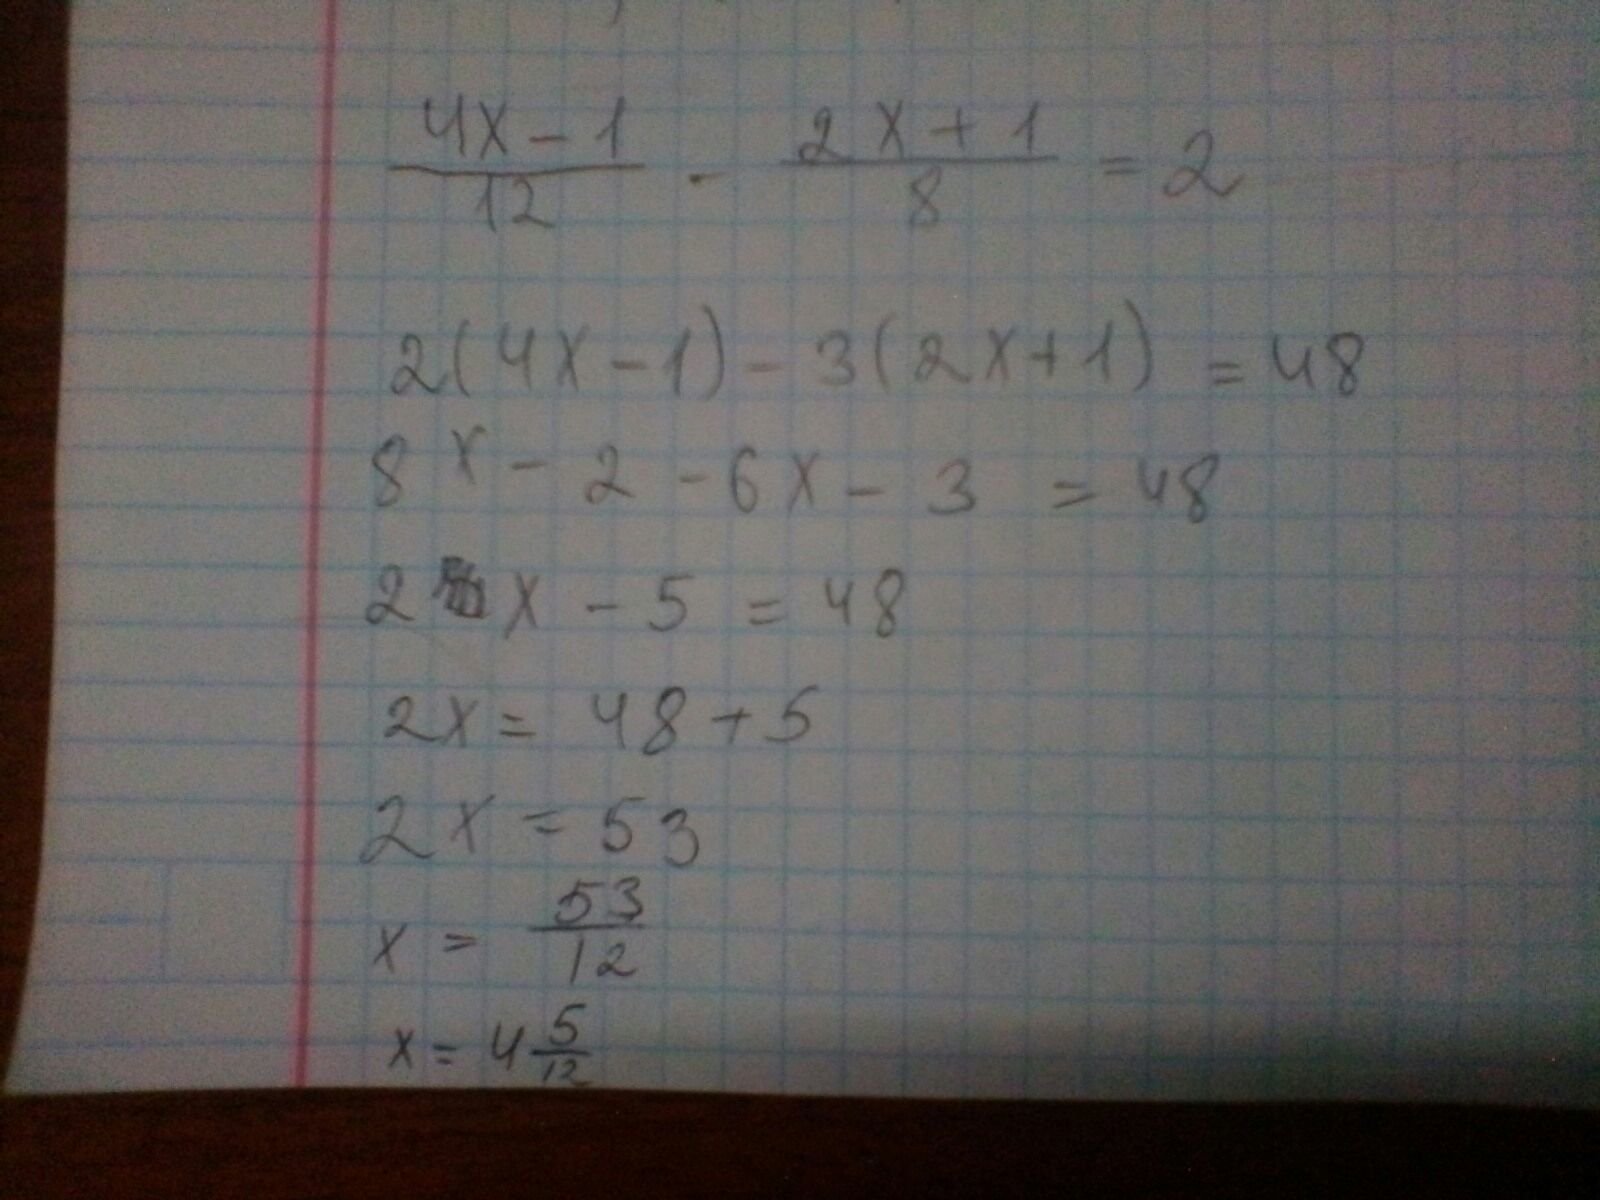 (4x-1)/12 - (2x+1)/8 = 2
2(4x-1)-3(2x+1) = 48
8x-2-6x-3 = 48
2x-5 = 48
2x = 48+5
2x = 53
x = 53/12
x = 4 5/12